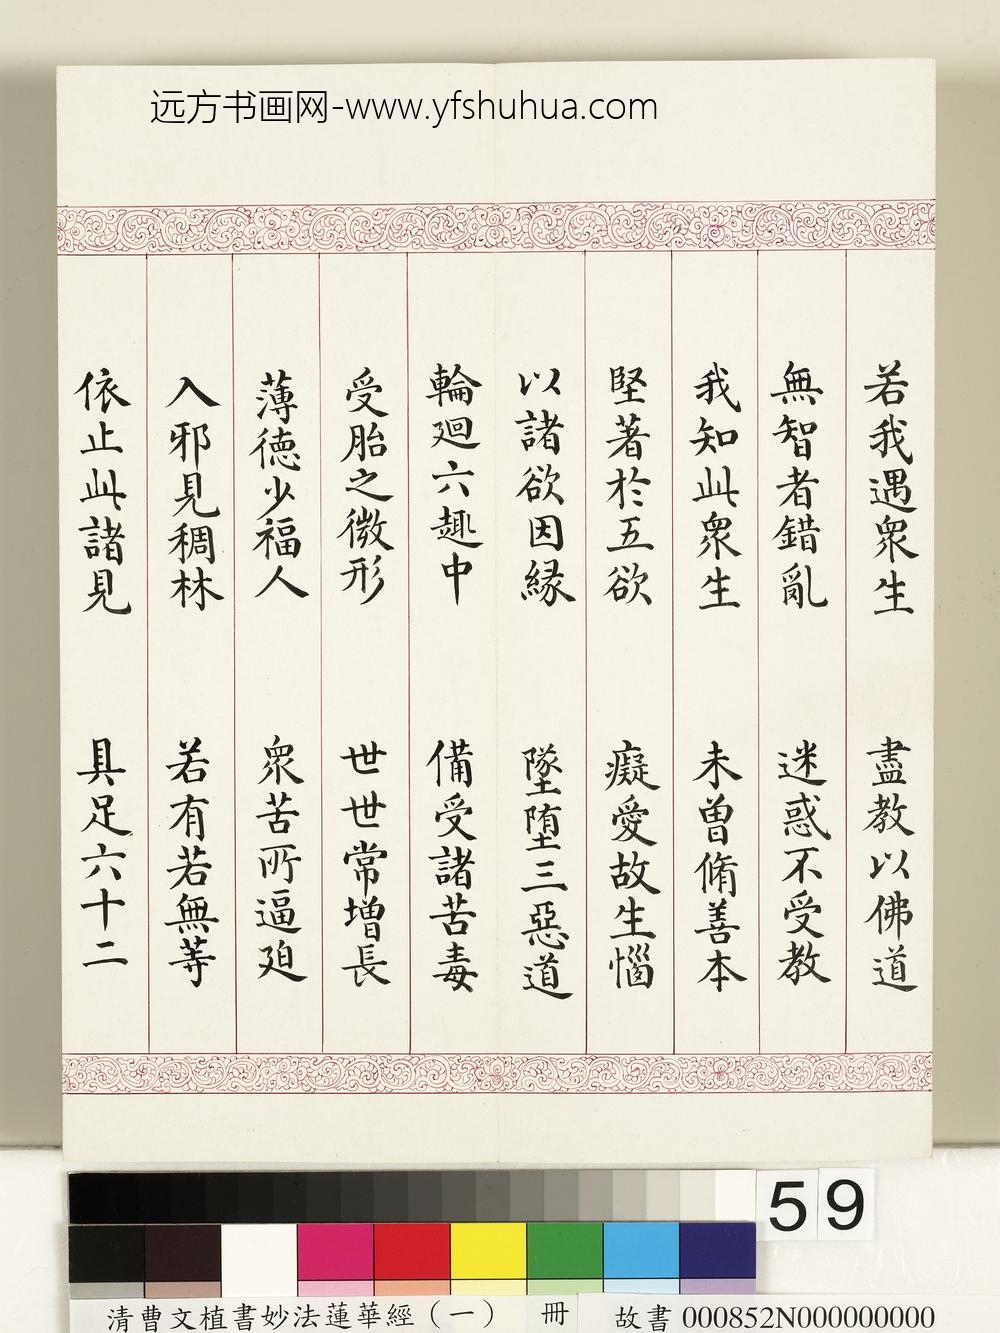 远方书画网-www.yfshuhua.com
若我遇衆生 盡教以佛道
無智者錯亂 迷惑不受教
我知此衆生 未曾脩善本
堅著於五欲 癡愛故生惱
以諸欲因縁 墜堕三惡道
輪廻六趣中 備受諸苦毒
受胎之微形 世世常增長
薄德少福人 衆苦所逼迫
入邪見稠林 若有若無等
依止此諸見 具足六十二
59
清曹文植書妙法蓮華經(一) 冊 故書 000852N000000000